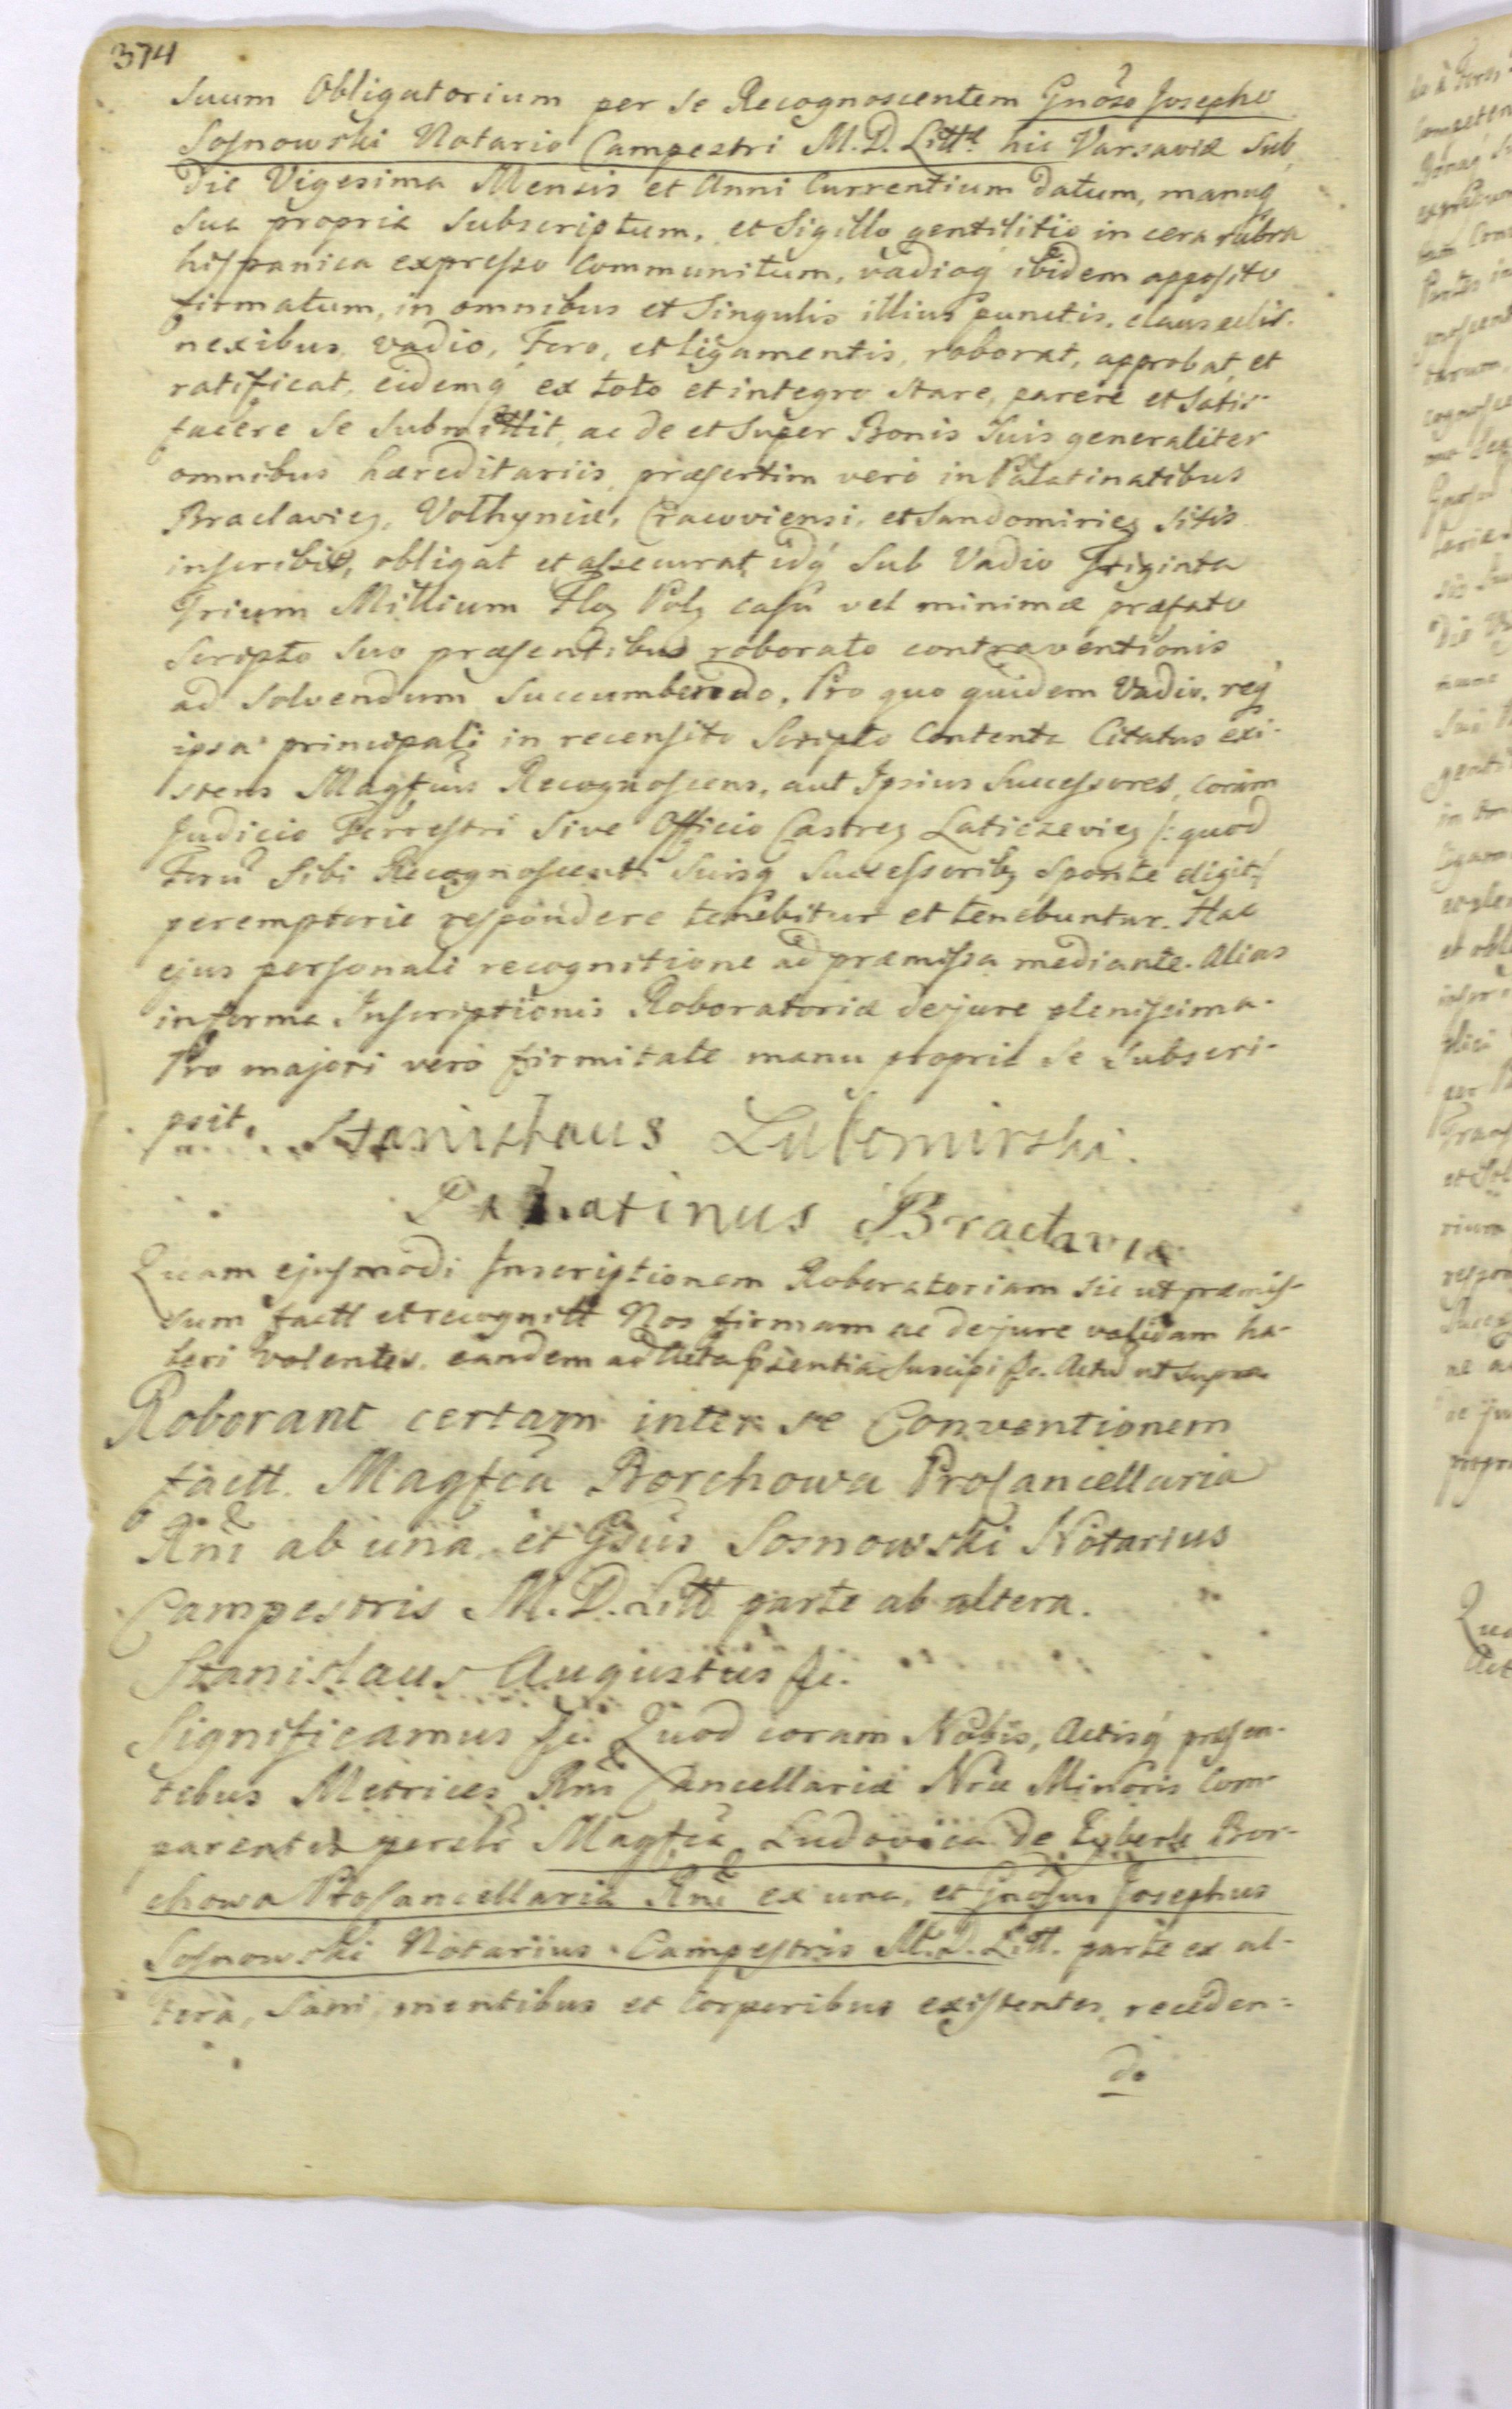 374
Suum Obligatorium per se Recognoscentem Gnoso Josepho
Sosnowski Notario Campestri M. D. Litt. hic Varsaviæ Sub
die Vigesima Mensis et Anni Currentium datum, manuq
sua propria subscriptum, et Sigillo gentilitio in cera rubra
hispanica expresso Communitum, vadioq ibidem apposito
firmatum, in omnibus et Singulis illius Punctis, clausulis
nexibus, vadio, Foro, et ligamentis, roborat, approbat, et
ratificat, eidemq ex toto et integro stare, parere et Satis-
facere se submittit, ac de et Super Bonis Suis generaliter
omnibus hæreditariis, præsertim verò in Palatinatibus
Braclavien, Volhyniæ, Cracoviensi, et Sandomirien Sitis
inscribit, obligat et assecurat, idq Sub Vadio Triginta
Trium Millium Flo Pol casu vel minimæ præfato
Scripto Suo præsentibus roborato contraventionis
ad Solvendum Succumbendo. Pro quo quidem Vadio, req
ipsa principali in recensito Scripto Contenta Citatus exi-
stens Magfcus Recognoscens, aut Ipsius Successores, coram
Judicio Terrestri Sive Officio Castren Laticzevien /: quod
Foru Sibi Recognoscenti Suisq Successoribq Sponte eligit /
peremptorie respondere tenebitur et tenebuntur. Hac
ejus personali recognitione ad præmissa mediante. Alias
in forma Inscriptionis Roboratoriæ de jure plenissima.
Pro majori verò firmitate manu propria se Subscri-
psit. Stanislaus Lubomirski.
Palatinus Braclaviæ
Quam ejusmodi Inscriptionem Roboratoriam sic ut præmis-
sum fact et recognitt Nos firmam ac de jure validam ha-
beri volentes, eandem ad Acta psentia Suscipi &c. Actu ut Supra
Roborant certam inter se Conventionem
factt. Magfca Borchowa ProCancellaria
Rni ab una, et Gsus Sosnowski Notarius
Campestris M. D. Litt parte ab altera.
Stanislaus Augustus &c.
Significamus &c. Quod coram Nobis, Actisq præsen-
tibus Metrices Rni Cancellariæ Nræ Minoris Com-
parentes persltr Magfca Ludovica de Bor-
chowa ProCancellaria Rni ex una, et Gnosus Josephus
Sosnowski Notarius Campestris M. D. Litt. parte ex al-
tera, Sani mentibus et Corporibus existentes, receden=
do